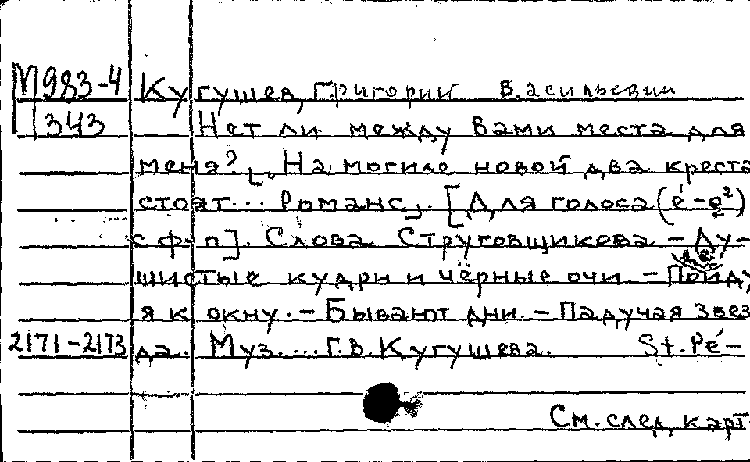 М983-4 Кугушев, Григорий Васильевич
343 Нет ли между вами места для
меня? [„На могиле новой два креста
стоят... Романс]. [Для голоса (é-g²)
с ф-п]. Слова Струговщикова. – Ду-
шистые кудри и чёрные очи – Пойду
я к окну. – Бывают дни. – Падучая звез-
2171-2173 да. Муз. ... Г.В. Кугушева. St. Pé-
См. след. карт